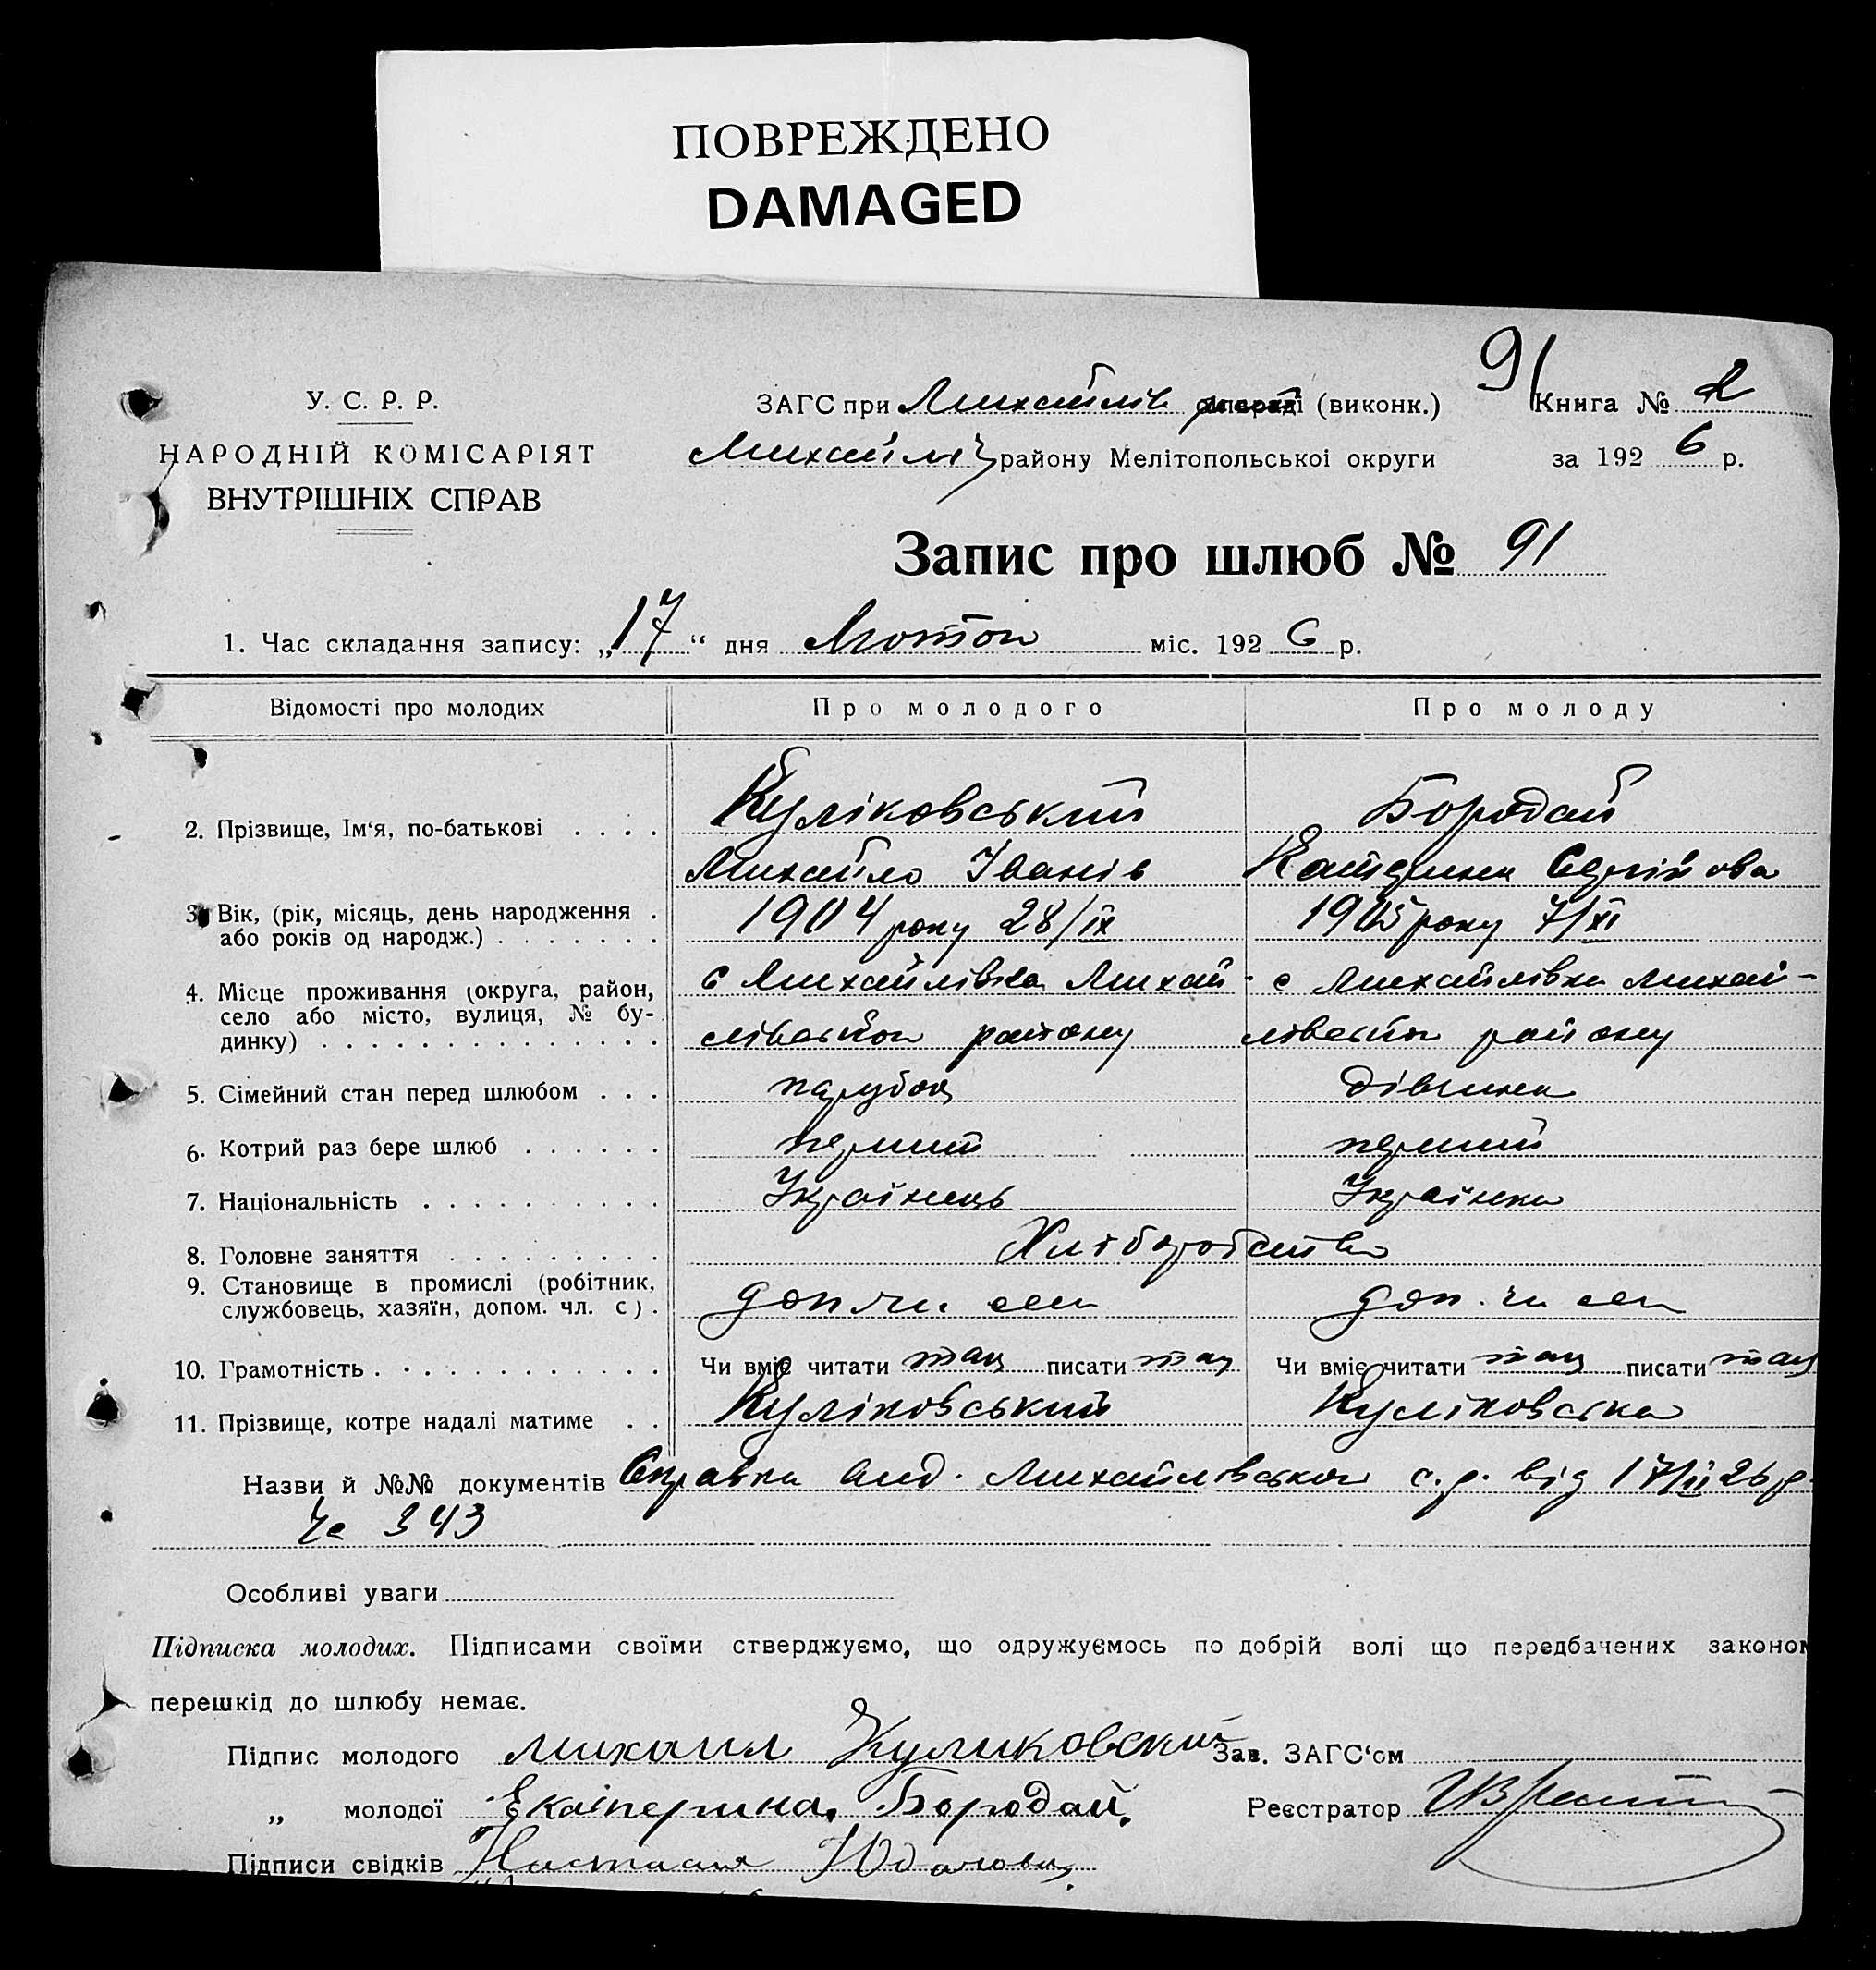 ПОВРЕЖДЕНО
DAMAGED
91
У. С. Р. Р.
НАРОДНІЙ КОМІСАРІЯТ
ВНУТРІШНІХ СПРАВ
ЗАГС при Михайлів (виконк.)
Михайлів району Мелітопольської округи
Книга № 2
за 1926 р.
Запис про шлюб № 91
1. Час складання запису: „17“ дня Лютого міс. 1926 р.
Відомості про молодих Про молодого Про молоду
2. Прізвище, Ім'я, по-батькові . . . . Куліковський Бородай
Михайло Іванів Катерина Сергійова
3. Вік, (рік, місяць, день народження . 1904 року 28/IX 1905 року 7/XI
або років од народж.) . . . . . . .
4. Місце проживання (округа, район, с Михайлівка Михай- с Михайлівка Михай-
село або місто, вулиця, № бу-
динку) . . . . . . . . . . . . . . лівського району лівського району
5. Сімейний стан перед шлюбом . . . парубок дівчина
6. Котрий раз бере шлюб . . . . . . перший перший
7. Національність . . . . . . . . . . Українець Українка
8. Головне заняття . . . . . . . . . Хліборобство
9. Становище в промислі (робітник,
службовець, хазяїн, допом. чл. с) . доп. чл. сем доп. чл сем
10. Грамотність . . . . . . . . . . . . Чи вміє читати так писати так Чи вміє читати так писати так
11. Прізвище, котре надалі матиме . . Куліковський Куліковська
Назви й №№ документів Справка вид. Михайлівською с.р. від 17/II 26 р.
Че 343
Особливі уваги
Підписка молодих. Підписами своїми стверджуємо, що одружуємось по добрій волі що передбачених законом
перешкід до шлюбу немає.
Підпис молодого Михаил Куликовский Зав. ЗАГС'ом
„ молодої Екатерина Бородай. Реєстратор
Підписи свідків Настасия Юдакова